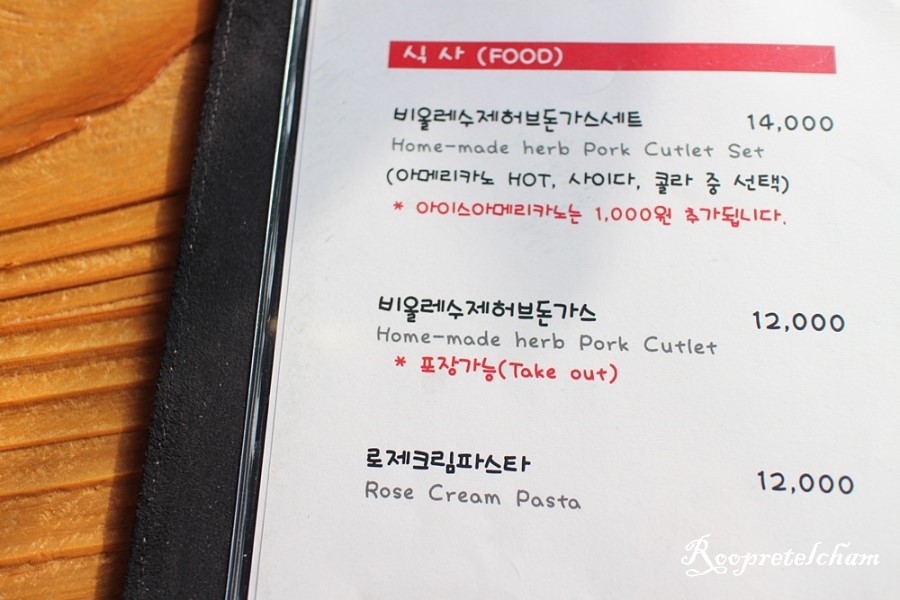 식 사 (FOOD)
비올레수제허브돈가스세트 14,000
Home-made herb Pork Cutlet Set
(아메리카노 HOT, 사이다, 콜라 중 선택)
* 아이스아메리카노는 1,000원 추가됩니다.
비올레수제허브돈가스 12,000
Home-made herb Pork Cutlet
* 포장가능(Take out)
로제크림파스타 12,000
Rose Cream Pasta
Roopretelcham